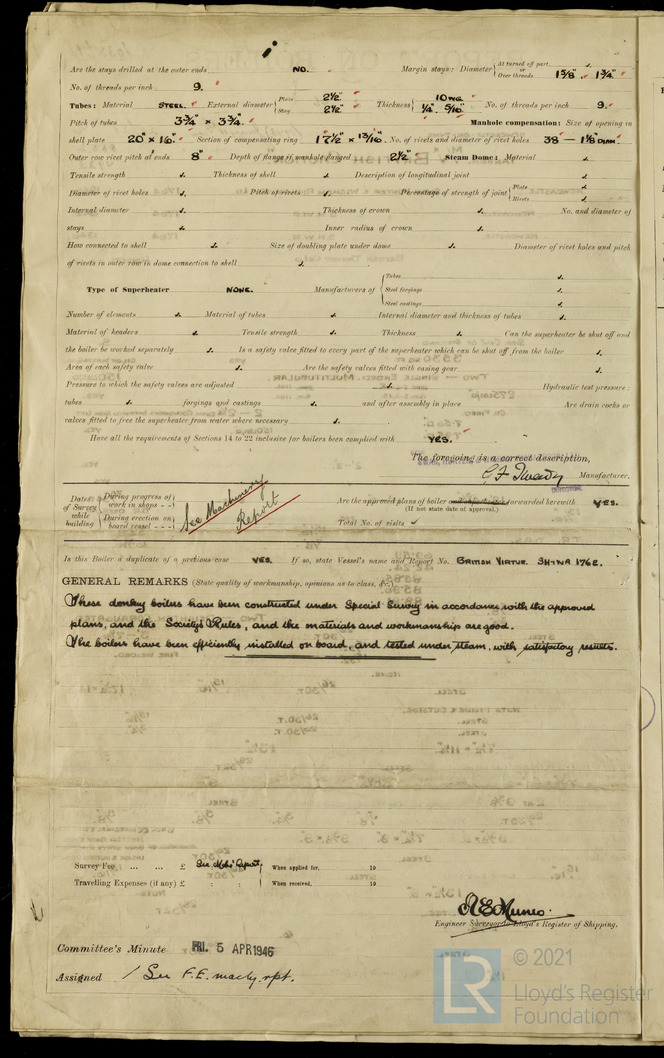 Are the stays drilled at the outer ends NO. Margin stays: Diameter { At turned off part or Over threads 1 5/8" 1 3/4"
No. of threads per inch 9.
Tubes: Material STEEL. External diameter { Plain 2 1/2" Stay 2 1/2" Thickness { 10 WG 1/4" 5/16" No. of threads per inch 9.
Pitch of tubes 3 3/4" × 3 3/4" Manhole compensation: Size of opening in
shell plate 20" × 16" Section of compensating ring 17 1/2" × 13/16" No. of rivets and diameter of rivet holes 38 — 1 1/8 DIAM.
Outer row rivet pitch at ends 8" Depth of flange if manhole flanged 2 1/2" Steam Dome: Material
Tensile strength Thickness of shell Description of longitudinal joint
Diameter of rivet holes Pitch of rivets Percentage of strength of joint { Plate Rivets
Internal diameter Thickness of crown No. and diameter of
stays Inner radius of crown
How connected to shell Size of doubling plate under dome Diameter of rivet holes and pitch
of rivets in outer row in dome connection to shell
Type of Superheater NONE. Manufacturers of { Tubes Steel forgings Steel castings
Number of elements Material of tubes Internal diameter and thickness of tubes
Material of headers Tensile strength Thickness Can the superheater be shut off and
the boiler be worked separately Is a safety valve fitted to every part of the superheater which can be shut off from the boiler
Area of each safety valve Are the safety valves fitted with easing gear
Pressure to which the safety valves are adjusted Hydraulic test pressure:
tubes forgings and castings and after assembly in place Are drain cocks or
valves fitted to free the superheater from water where necessary
Have all the requirements of Sections 14 to 22 inclusive for boilers been complied with YES.
The foregoing is a correct description,
Manufacturer.
Dates of Survey while building { During progress of work in shops - - During erection on board vessel - - } See Machinery Report
Are the approved plans of boiler forwarded herewith YES.
(If not state date of approval.)
Total No. of visits
Is this Boiler a duplicate of a previous case YES. If so, state Vessel's name and Report No. BRITISH VIRTUE. SH-TNA 1762.
GENERAL REMARKS (State quality of workmanship, opinions as to class, &c.)
These donkey boilers have been constructed under Special Survey in accordance with the approved
plans, and the Society's Rules, and the materials and workmanship are good.
The boilers have been efficiently installed on board, and tested under steam, with satisfactory results.
Survey Fee ... ... £ See Mchy Report When applied for, 19
Travelling Expenses (if any) £ : : When received, 19
Engineer Surveyor to Lloyd's Register of Shipping.
Committee's Minute FRI. 5 APR 1946
Assigned See F.E. machy. rpt.
LR
© 2021
Lloyd's Register
Foundation